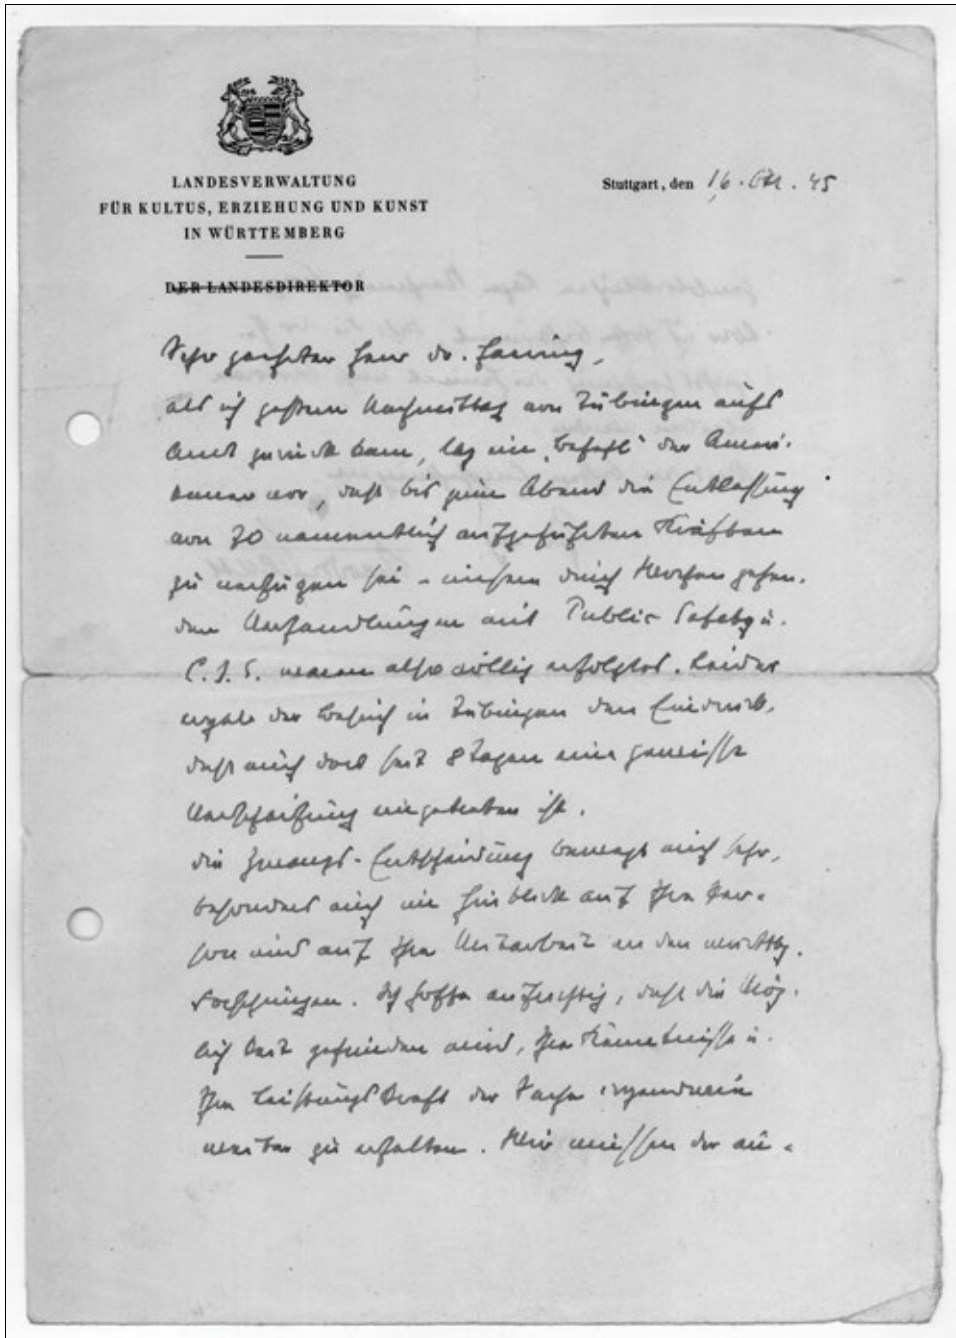 LANDESVERWALTUNG
FÜR KULTUS, ERZIEHUNG UND KUNST
IN WÜRTTEMBERG
Stuttgart, den 16. Okt. 45
DER LANDESDIREKTOR
Sehr geehrter Herr Dr.
als ich gestern Nachmittag von Tübingen aufs
Amt zurück kam, lag ein „Befehl“ der Ameri-
kaner vor, daß bis zum Abend die Entlassung
von 70 namentlich aufgeführten Kräften
zu verfügen sei – unsere durch Wochen gehen-
den Verhandlungen mit Public Safety u.
C.I.S. waren also völlig erfolglos. Leider
ergab der Besuch in Tübingen den Eindruck,
daß auch dort seit 8 Tagen eine gewisse
Verschärfung eingetreten ist.
Die Zwangs-Entscheidung bewegt mich sehr,
besonders auch im Hinblick auf Ihre Per-
son und auf Ihre Mitarbeit an den württbg.
Forschungen. Ich hoffe aufrichtig, daß die Mög-
lichkeit gefunden wird, Ihre Kenntnisse u.
Ihre Leistungskraft der Sache irgendwie
weiter zu erhalten. Wir müssen der au-